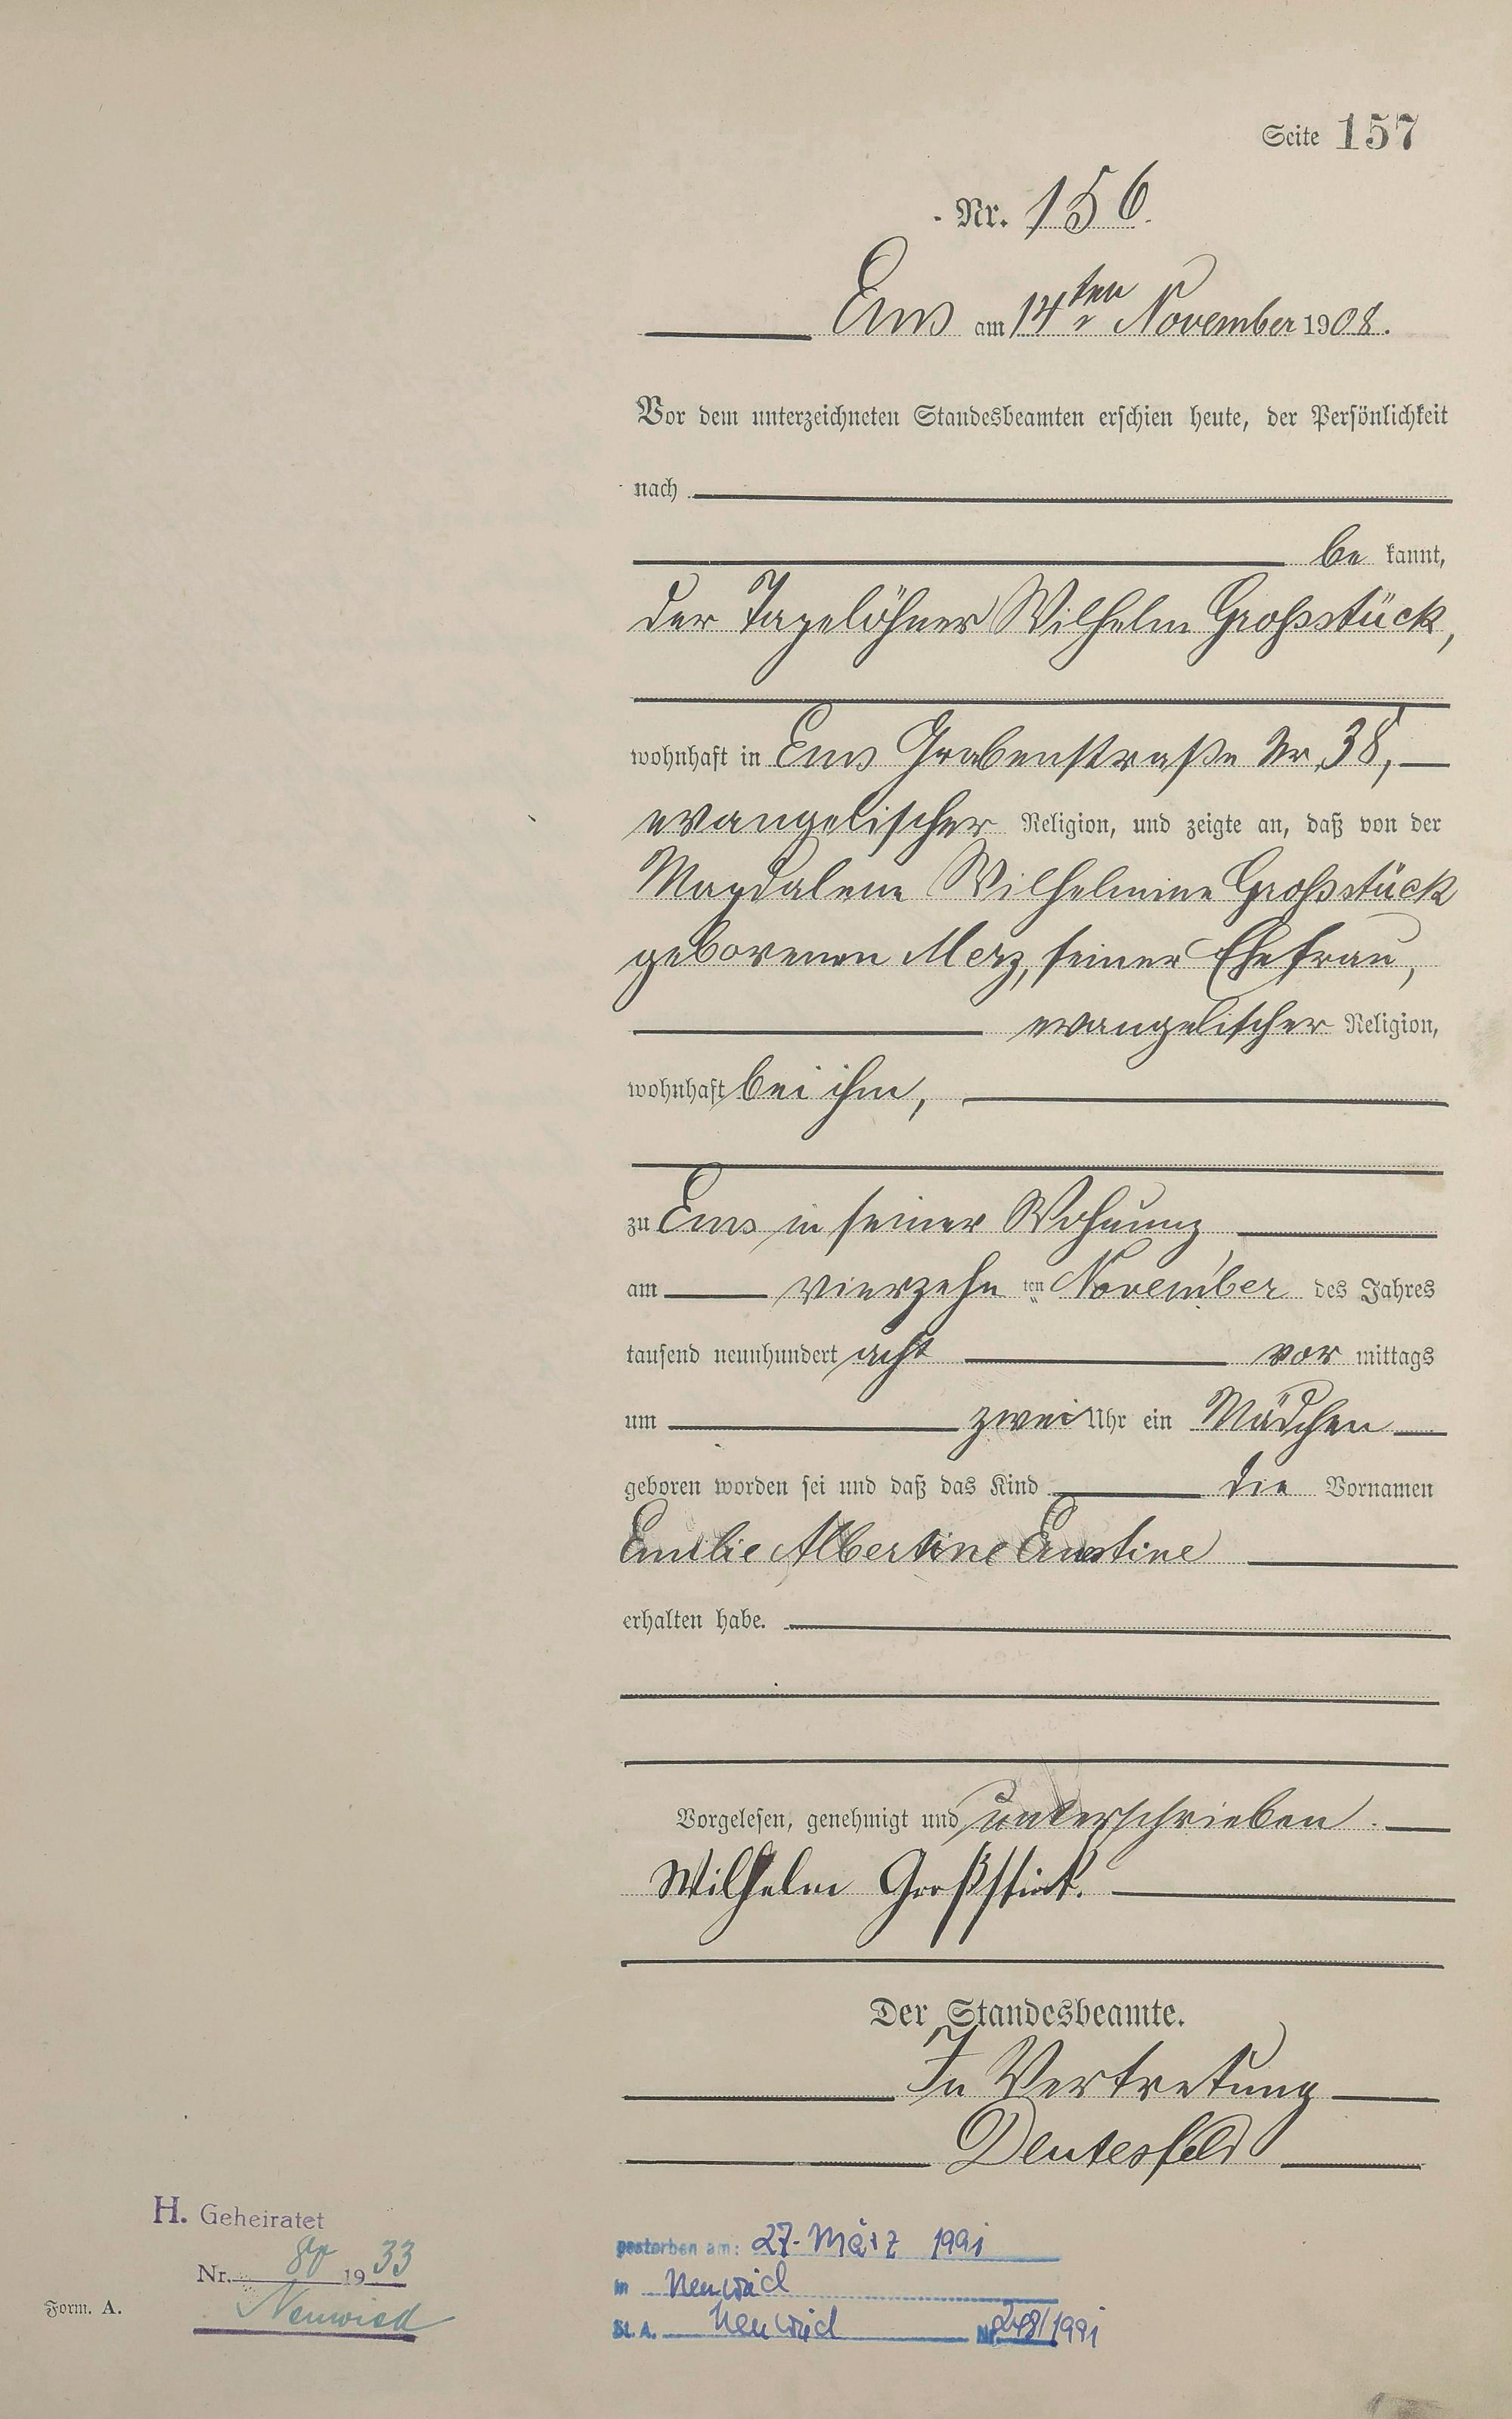 Seite 157
Nr. 156.
Ems am 14ten November 1908.
Vor dem unterzeichneten Standesbeamten erschien heute, der Persönlichkeit
nach
be kannt,
der Tagelöhner Wilhelm Großstück,
wohnhaft in Ems Grabenstraße Nr. 38,
evangelischer Religion, und zeigte an, daß von der
Magdalene Wilhelmine Großstück
geborenen Merz, seiner Ehefrau,
evangelischer Religion,
wohnhaft bei ihm,
zu Ems in seiner Wohnung
am vierzehn ten November des Jahres
tausend neunhundert acht vor mittags
um zwei Uhr ein Mädchen
geboren worden sei und daß das Kind die Vornamen
Emilie Albertine Ernestine
erhalten habe.
Vorgelesen, genehmigt und unterschrieben.
Wilhelm Großstück.
Der Standesbeamte.
In Vertretung
Deutesfeld
H. Geheiratet
Nr. 80 1933
Neuwied
Form. A.
gestorben am: 27. März 1991
in Neuwied
St. A. Neuwied Nr. 248/1991